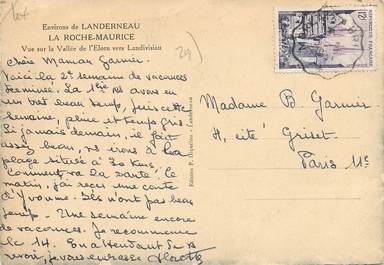 Environs de LANDERNEAU
LA ROCHE-MAURICE
Vue sur la Vallée de l'Elorn vers Landivisiau
Chère Maman Garnier.
Voici la 2e semaine de vacances
terminée. La 1ère ns avons eu
un très beau temps, puis cette
semaine, pluie et temps gris.
Si jamais demain, il fait
assez beau, ns irons à la
plage située à 30 kms.
Comment va la santé? le
matin, j'ai reçu une carte
d'Yvonne. Ils n'ont pas beau
temps. Une semaine encore
de vacances. Je recommence
le 14. En attendant de vs
revoir, je vous embrasse
29)
Madame B. Garnier
4, cité Griset
Paris 11e
12f